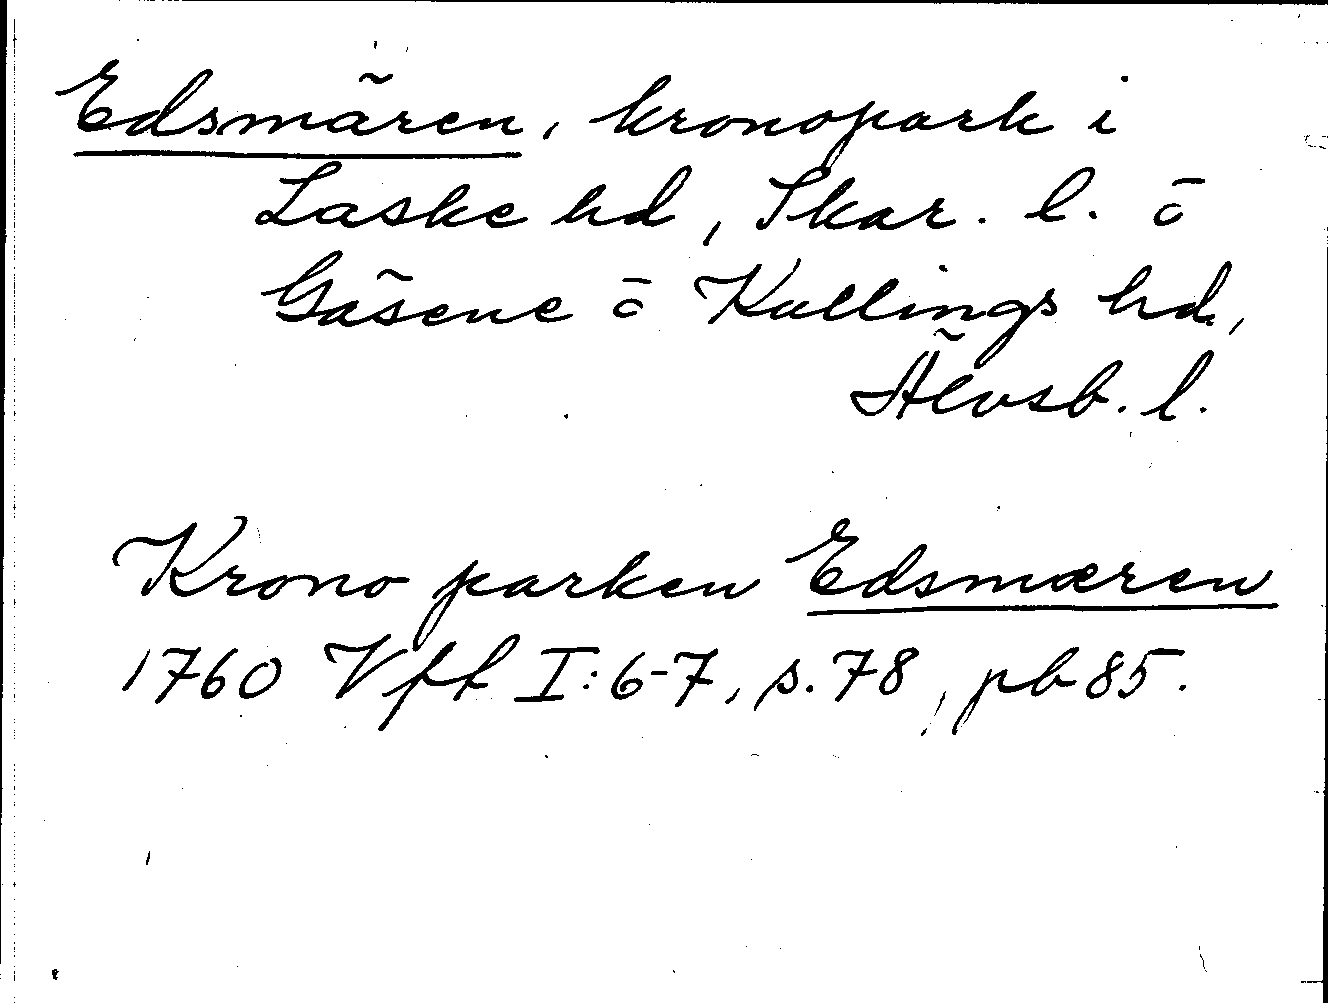 Edsmären, kronopark i
Laske hd, Skar. l. ö
Gäsene ö Kullings hd,
Älvsb. l.
Krono parken Edsmæren
1760 Vff I:6-7, s. 78, pb 85.